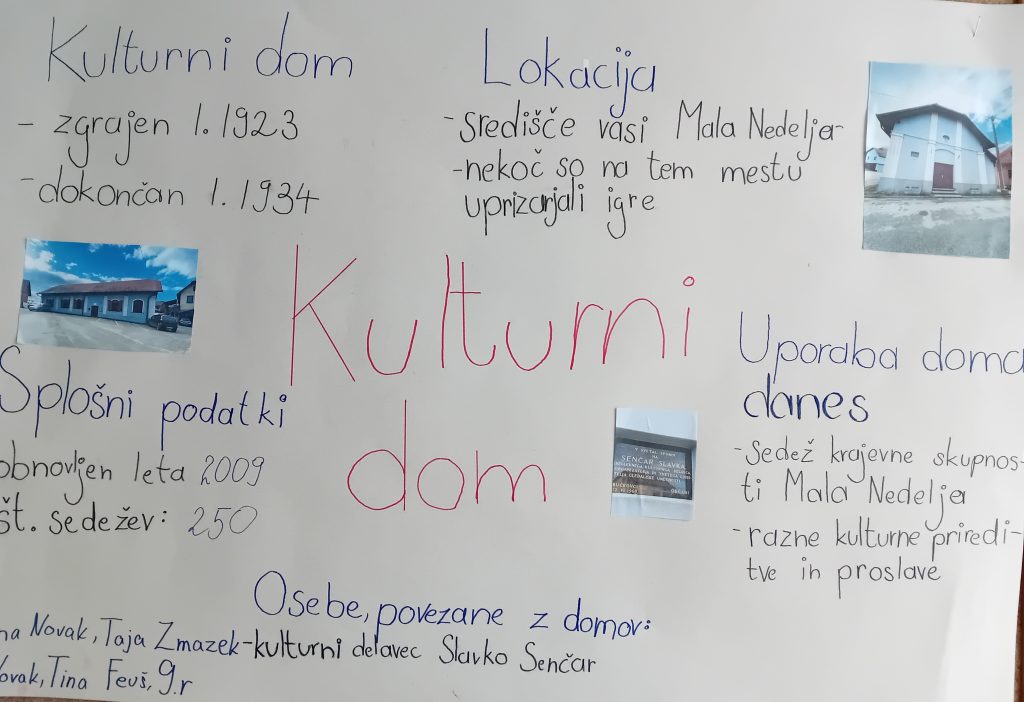 Kulturni dom
- zgrajen l. 1923
- dokončan l. 1934
Lokacija
- središče vasi Mala Nedelja
- nekoč so na tem mestu
uprizarjali igre
Kulturni
dom
Splošni podatki
obnovljen leta 2009
št. sedežev: 250
Uporaba doma
danes
- sedež krajevne skupnos-
ti Mala Nedelja
- razne kulturne priredi-
tve in proslave
V SVETAL SPOMIN
NA
SENČAR SLAVKA
Osebe, povezane z domov:
- kulturni delavec Slavko Senčar
Novak, Taja Zmazek
Tina Feuš, 9.r